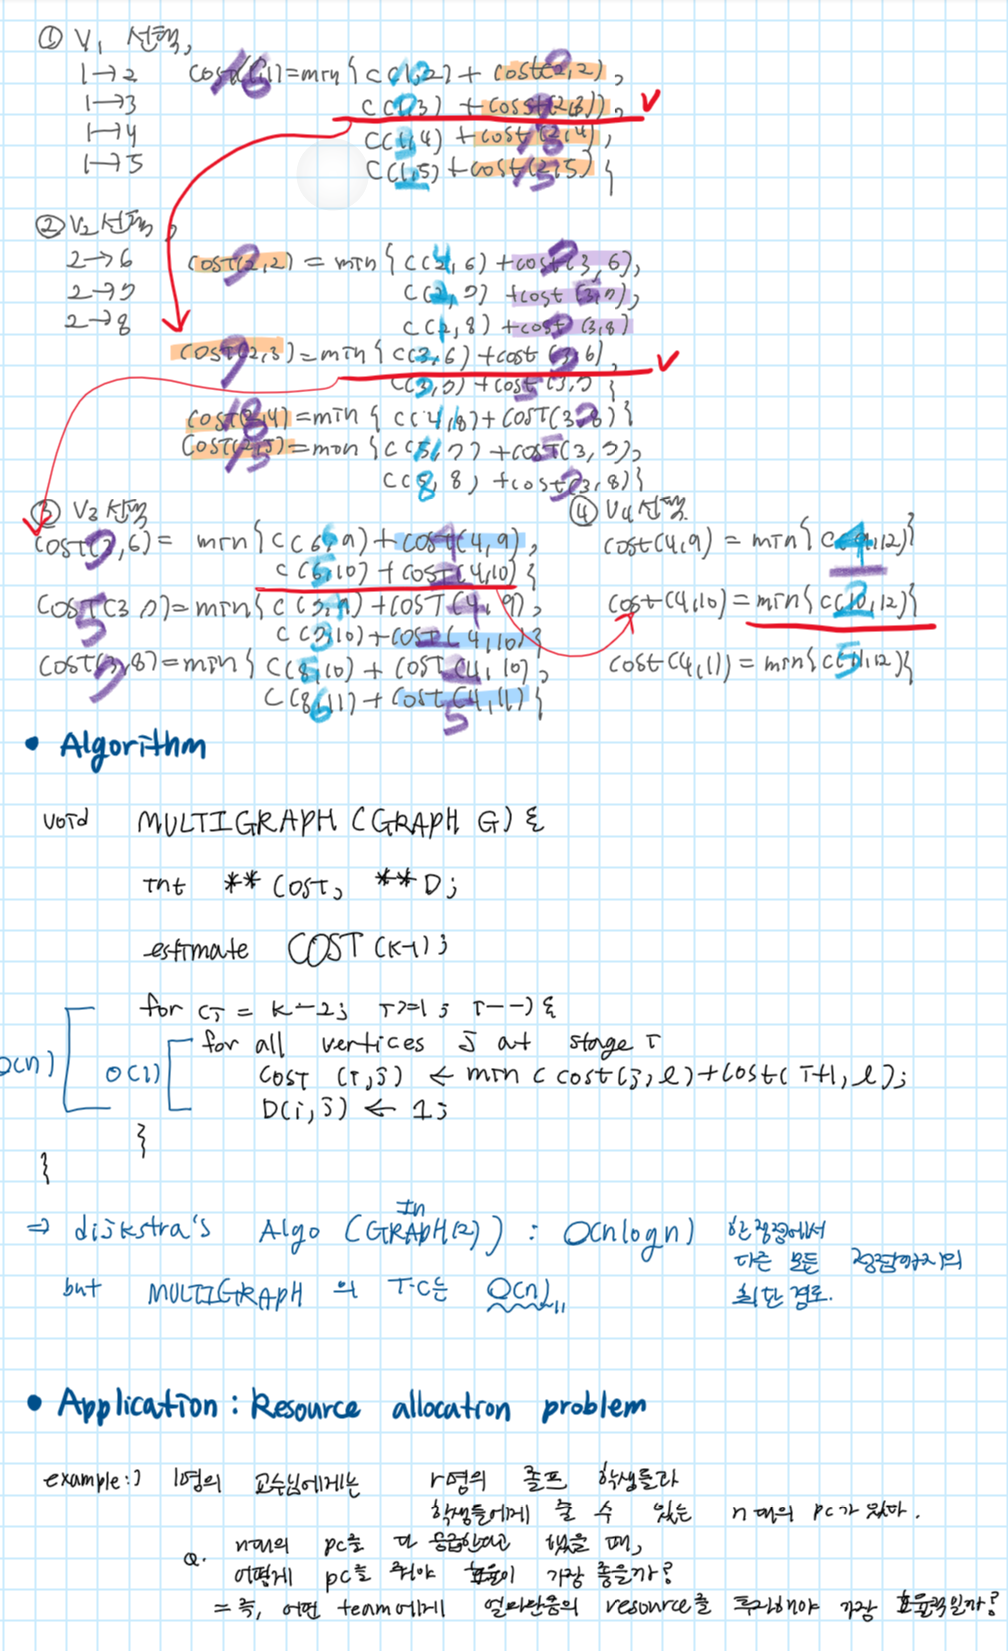 ① V₁ 선택,
1→2 COST(1,1)=min{C(1,2)+cost(2,2),
1→3 C(1,3)+cost(2,3)),
1→4 C(1,4)+cost(2,4),
1→5 C(1,5)+cost(2,5)}
② V₂ 선택,
2→6 COST(2,2)=min{C(2,6)+cost(3,6),
2→7 C(2,7)+cost(3,7),
2→8 C(2,8)+cost(3,8)
COST(2,3)=min{C(3,6)+cost(3,6),
C(3,7)+cost(3,7}
COST(2,4)=min{C(4,8)+COST(3,8)}
COST(2,5)=min{C(5,7)+COST(3,7),
C(5,8)+cost(3,8)}
③ V₃ 선택
COST(3,6)= min{C(6,9)+cost(4,9),
C(6,10)+cost(4,10)}
COST(3,7)=min{C(7,9)+COST(4,9),
C(7,10)+cost(4,10)}
COST(3,8)=min{C(8,10)+COST(4,10),
C(8,11)+COST(4,11)}
④ V₄ 선택
cost(4,9)=min{C(9,12)}
cost(4,10)=min{C(10,12)}
cost(4,11)=min{C(11,12)}
• Algorithm
void MULTIGRAPH (GRAPH G) {
int ** COST, **D;
estimate COST(K-1);
for (i = k-2; i>=1; i--) {
for all vertices j at stage i
COST (i,j) ← min ( cost(j,l)+cost(i+1,l);
D(i,j) ← 1;
}
}
O(n)
O(1)
⇒ dijkstra's Algo (In GRAPH(2)) : O(nlogn) 한 정점에서
다른 모든 정점까지의
최단 경로.
but MULTIGRAPH 의 T.C는 O(n)
• Application : Resource allocation problem
example:) 1명의 교수님에게는 r명의 졸프 학생들과
학생들에게 줄 수 있는 n대의 pc가 있다.
Q. n대의 pc를 다 했을 때,
어떻게 pc를 줘야 효율이 가장 좋을까?
= 즉, 어떤 team에게 얼마만큼의 resource를 투자해야 가장 효율적일까?